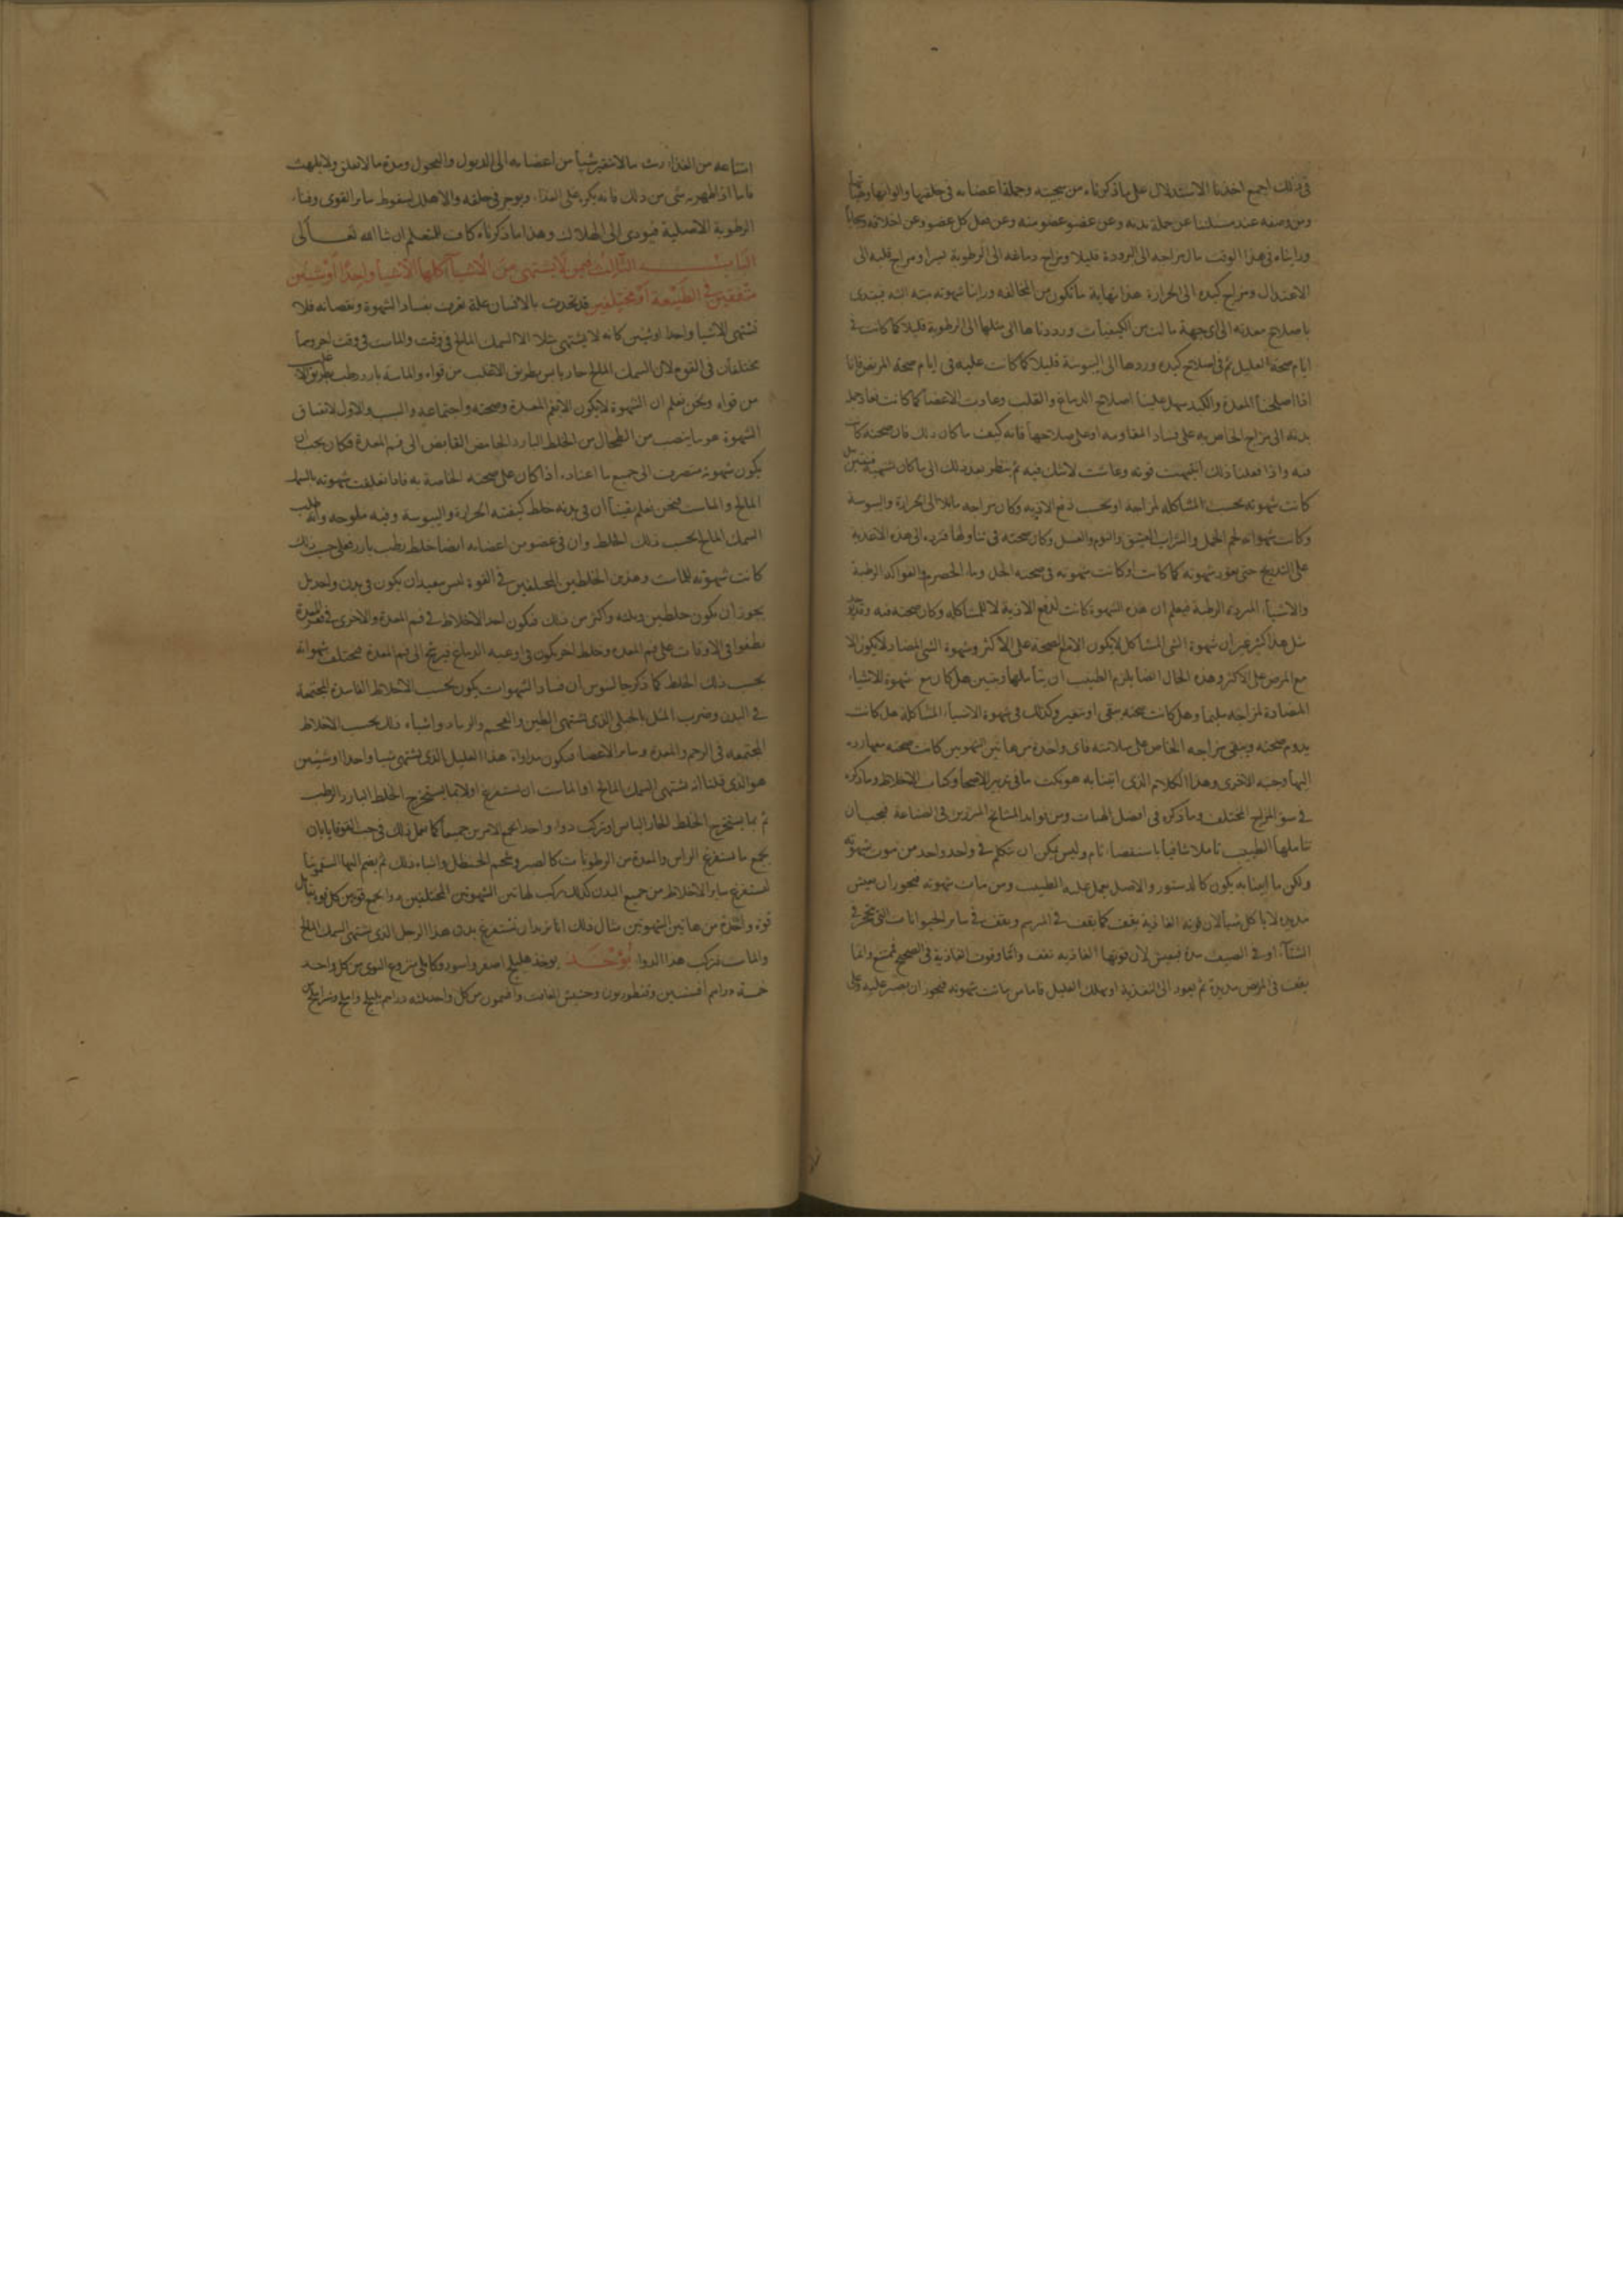 في ذلك اجمع اخذنا الاستدلال على ما ذكرناه من سحنته وجملة اعضائه في خلقتها والوانها
ومن وصفه عند مسئلتنا عن حملة بدنه وعن عضو عضو منه وعن فعل كل عضو وعن اخلاقه
وراىناه في هذا الوقت مال مزاجه الى البرودة قليلا ومزاج دماغه الى الرطوبة ومزاج قلبه الى
الاعتدال ومزاج كبده الى الحرارة هذا نهاية ما تكون من المخالفه وراينا شهوته ميته البته فنبتدى
باصلاح معدته الى اى جهة مالت من الكيفيات ورددناها الى مثلها الى الرطوبة قليلا كما كانت في
ايام صحة العليل ثم في اصلاح كبده وردها الى اليبوسة قليلا كما كانت عليه في ايام صحة المريض فانا
اذا اصلحنا المعدة والكبد سهل علينا اصلاح الدماغ والقلب وعادت الاعضا كما كانت
بدنه الى مزاج الخاص به على فساد المقاومه او على صلاحها فانه كيف ما كان ذلك فان صحته
فيه واذا فعلنا ذلك انتهت قوته وعاشت لا شك فيه ثم ننظر بعد ذلك الى ما كان تشتهيه
كانت شهوته بحسب المشاكله لمزاجه او بحسب دفع الاذيه وكان مزاجه مايلا الى الحرارة واليبوسة
وكانت شهواته لحم الحمل والشراب العتيق والثوم والعسل وكان صحته في تناولها فترده الى هذه الاغذية
على التدريج حتى يعود شهوته كما كانت او كانت شهوته في صحته الخل وماء الحصرم والفواكه الرطبة
والاشياء المبرده الرطبة فيعلم ان هذه الشهوة كانت لدفع الاذية لا للمشاكله وكان صحته فيه
مثل هذا كثير غير ان شهوة الشى المشاكل لا يكون الا مع الصحة على الاكثر وشهوة الشى المضاد لا يكون الا
مع المرض على الاكثر وهذه الحال ايضا يلزم الطبيب ان يتاملها ويتبين هل كان مع شهوة الاشياء
المضادة لمزاجه سليما وهل كانت صحته تبقى او تتغير وكذلك في شهوة الاشياء المشاكلة هل كانت
يدوم صحته ويبقى مزاجه الخاص على سلامته فاى واحدة من هاتين الشهوتين كانت صحته معها رده
اليها وجنبه الاخرى وهذا الكلام الذى اتينا به هو نكت ما في تدبير الاصحا وكتاب الاخلاط وما ذكره
في سو المزاج المختلف وما ذكره في افضل الهيات ومن فوايد المشايخ المبرزين في الصناعة فيجب ان
يتاملها الطبيب تاملا شافيا باستقصاء تام وليس يمكن ان نتكلم في واحد واحد من موت شهوته
ولكن ما اتينا به يكون كالدستور والاصل يعمل عليه الطبيب ومن ماتت شهوته فيجوز ان يعيش
مديده لا ياكل شيا لان قوته الغاذية يقف كما يقف في المبرسم ويقف في ساير الحيوانات التي
الشتآء او في الصيف مدة فيعيش لان قوتها الغاذيه تقف واما وقوف الغاذية في الصحيح فممتنع وانما
يقف في المرض مديدة ثم يعود الى التغذية او يهلك العليل فاما من ماتت شهوته فيجوز ان يعسر عليه
امتناعه من الغذاء ريث ما لا تفتقر شيا من اعضايه الى الذبول والنحول ومدة ما لا يقلق ولا يلهث
فاما اذا ظهر به شى من ذلك فانه يكره على الغذاء ويوجر في حلقه والا هلك لسقوط ساير القوى وفناء
الرطوبة الاصلية فيودى الى الهلاك وهذا ما ذكرناه كاف للمتعلم ان شا الله تعالى
البـاب الثالث فيمن لا يشتهى من الاشيآ كلها الا شيا واحدا او شيئين
متفقين في الطبيعة او مختلفين قد يحدث بالانسان علة تعرف بفساد الشهوة ونقصانه فلا
تشتهى الا شيا واحدا او شيئين كانه لا يشتهى مثلا الا السمك المالح في وقت والماست في وقت اخر وهما
مختلفان في القوه لان السمك المالح حار يابس بطريق الاغلب من قواه والماست بارد رطب على طريق الا
من قواه ونحن نعلم ان الشهوة لا يكون الا بفم المعدة وصحته واجتماعه والسبب الاول
الشهوة هو ما ينصب من الطحال من الخلط البارد الحامض القابض الى فم المعدة فكان يجب ان
يكون شهوته متصرفة الى جميع ما اعتاده اذا كان على صحته الخاصة به فاما تعلقت شهوته بالسمك
المالح والماست فنحن نعلم يقينا ان في بدنه خلط كيفيته الحرارة واليبوسة وفيه ملوحه وانه طلب
السمك المالح بحسب ذلك الخلط وان في عضو من اعضائه ايضا خلط رطب بارد فعلى حسب ذلك
كانت شهوته للماست وهذين الخلطين المختلفين في القوة ليس ببعيد ان يكون في بدن واحد بل
يجوز ان يكون خلطين وثلثه واكثر من ذلك فيكون احد الاخلاط في فم المعدة والاخرى في قعر المعدة
تطفوا في الاوقات على فم المعده وخلط اخر يكون في اوعية الدماغ فيرشح الى فم المعدة فيختلف شهواته
بحسب ذلك الخلط كما ذكر جالينوس ان فساد الشهوات يكون بحسب الاخلاط الفاسدة المجتمعة
في البدن وضرب المثل بالحبلى التي تشتهى الطين والفحم والرماد واشباه ذلك بحسب الاخلاط
المجتمعه في الرحم والمعدة وساير الاعضاء فيكون مداواة هذا العليل الذى يشتهى شيا واحدا او شيئين
هو الذى قلنا انه يشتهى السمك المالح او الماست ان يستفرغ اولا بما يستخرج الخلط البارد الرطب
ثم بما يستخرج الخلط الحار اليابس او تركب دوا واحدا يجمع الامرين جميعا كما عمل ذلك في حب القوقايا بان
يجمع ما يستفرغ الراس والمعدة من الرطوبات كالصبر وشحم الحنظل واشباه ذلك ثم يضم اليها السقمونيا
لتستفرغ ساير الاخلاط من جميع البدن كذلك تركب لهاتين الشهوتين المختلفتين دوا يجمع قوتين
قوة واحدة من هاتين الشهوتين مثال ذلك انا نريد ان نستفرغ بدن هذا الرجل الذى يشتهى السمك المالح
والماست فنركب هذا الدوا يؤخـذ يوخذ هليلج اصفر واسود وكابلى منزوع النوى من كل واحد
خمسة دراهم افسنتين وقنطوريون وحشيش الغافت وافتيمون من كل واحد ثلثه دراهم بليلج واملج